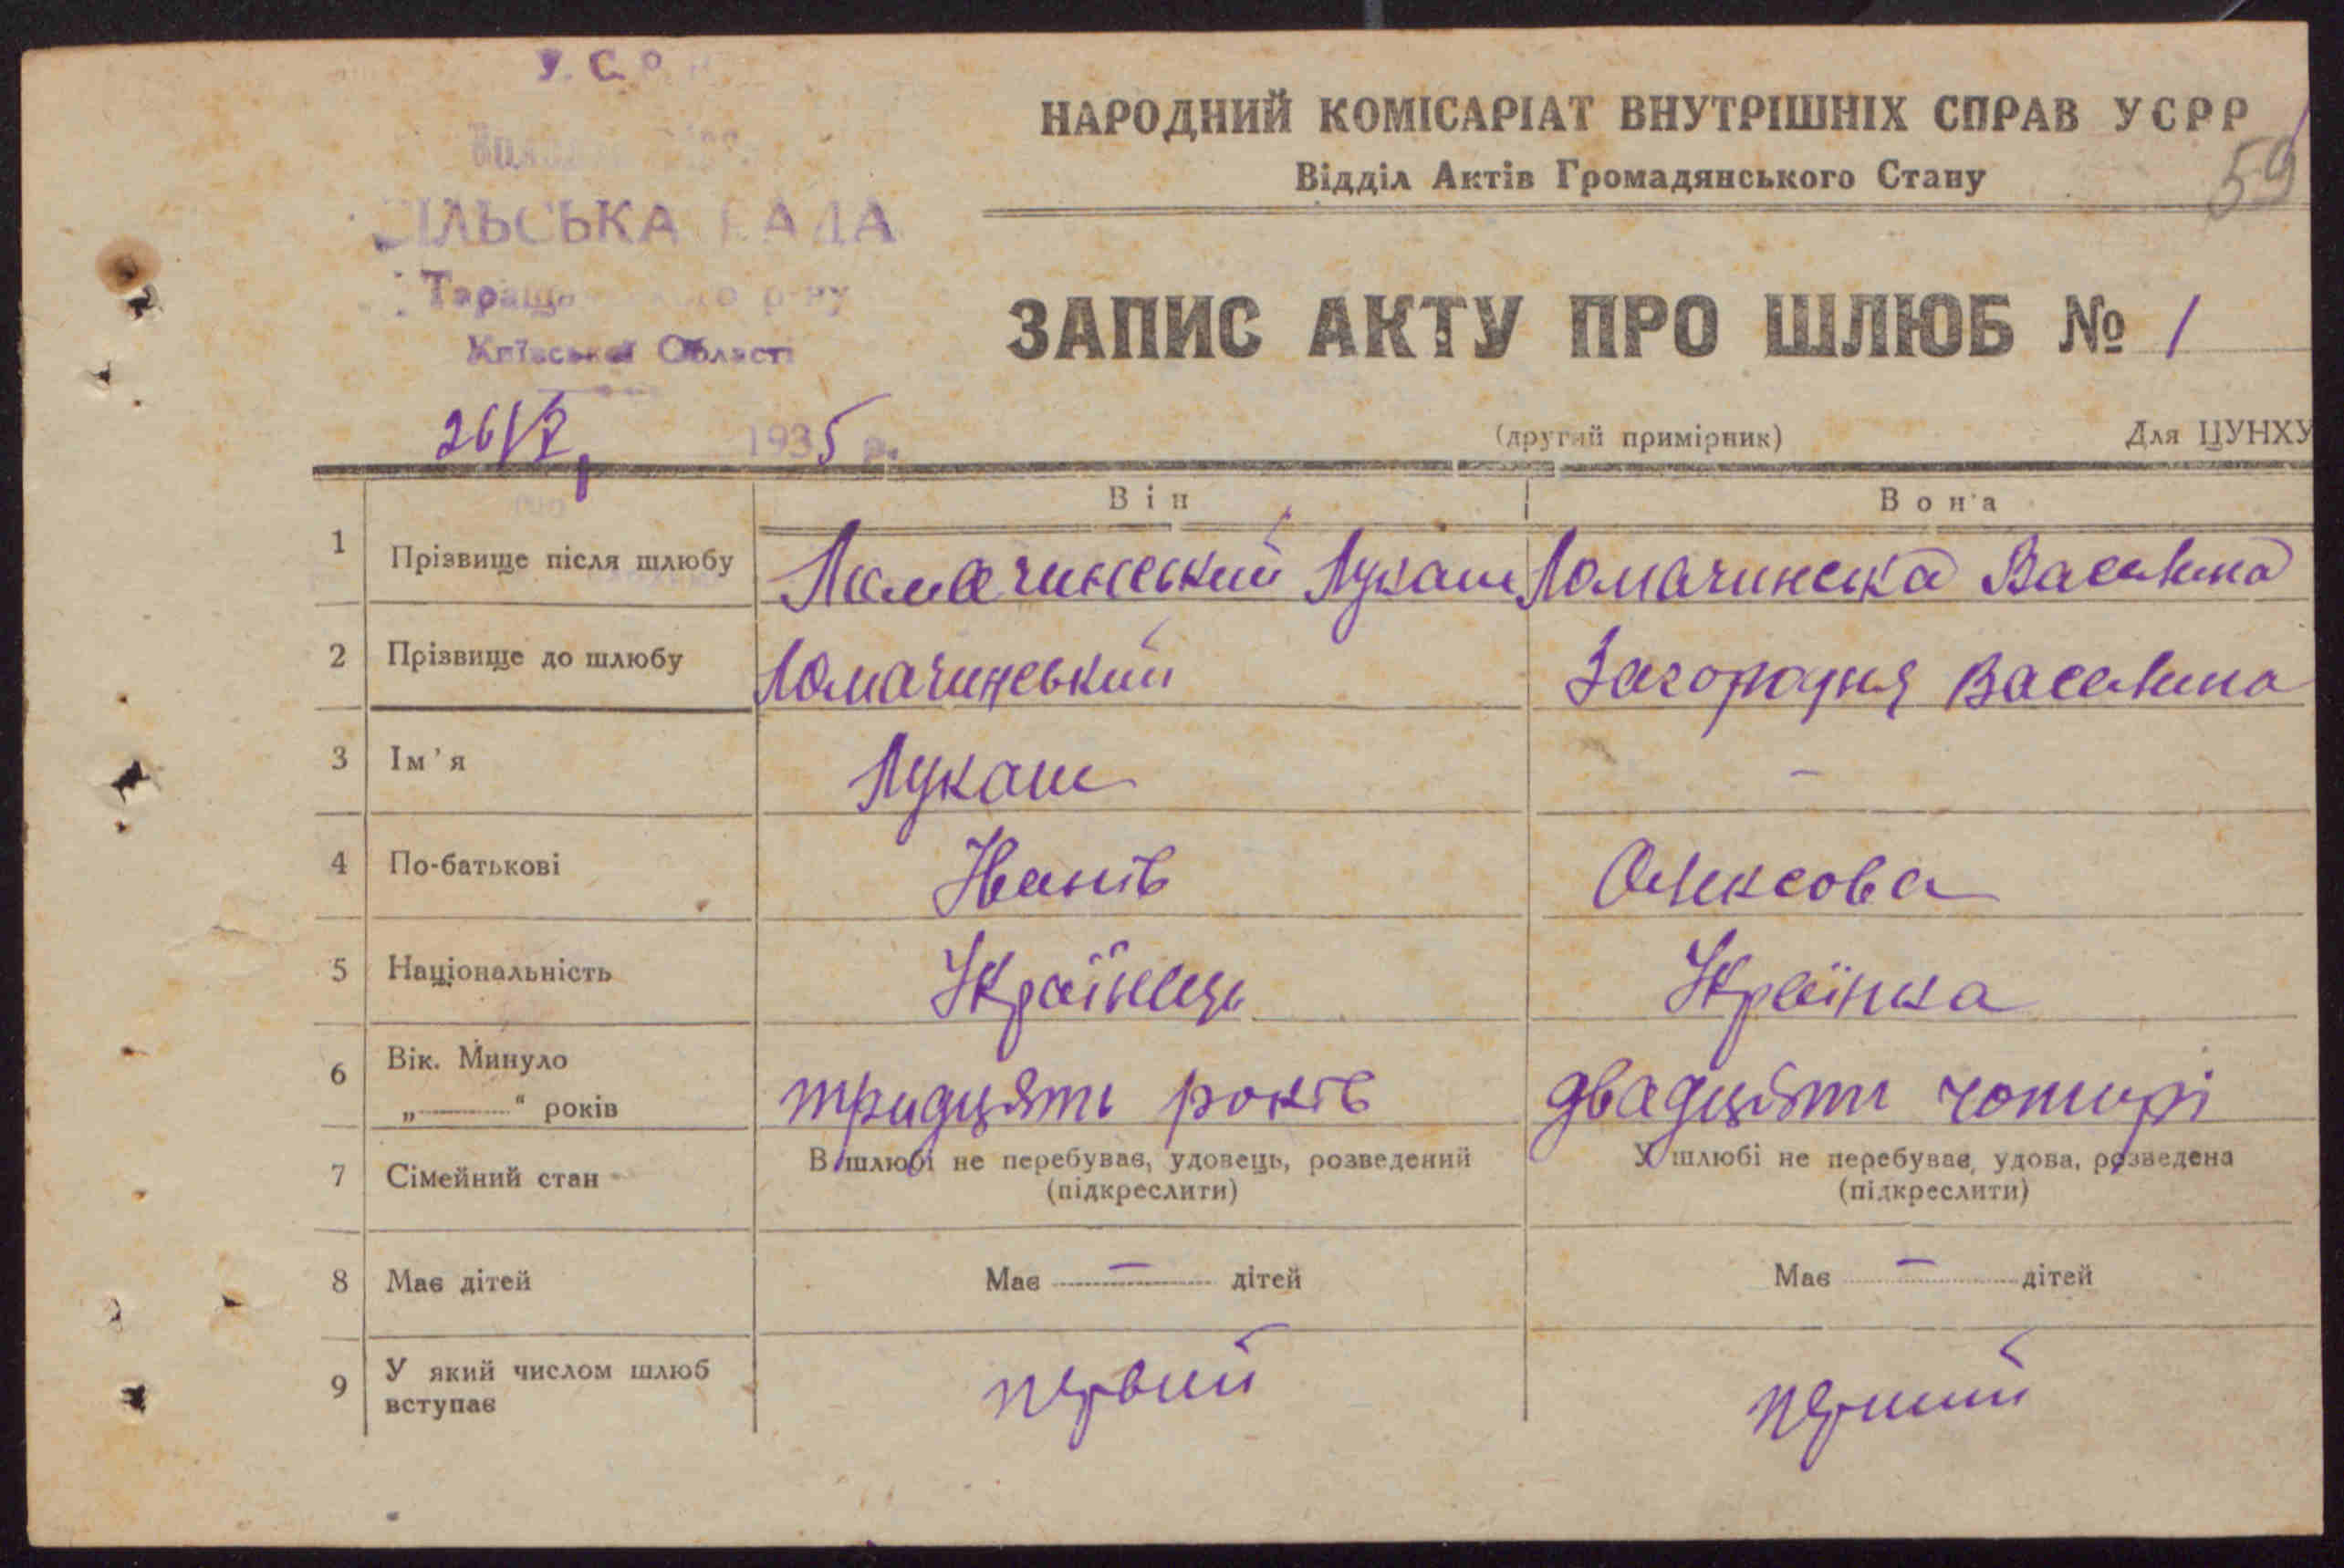 У. С. Р. Р.
НАРОДНИЙ КОМІСАРІАТ ВНУТРІШНІХ СПРАВ УСРР
Відділ Актів Громадянського Стану
59
СІЛЬСЬКА РАДА
Таращанського р-ну
Київської Області
ЗАПИС АКТУ ПРО ШЛЮБ № 1
1935 р.
(другий примірник) Для ЦУНХУ
Він Вона
1 Прізвище після шлюбу Ломачинський Лукаш Ломачинська Василина
2 Прізвище до шлюбу Ломачинський Загородня Василина
3 Ім'я Лукаш -
4 По-батькові Іванів Олексова
5 Національність Українець Українка
6 Вік. Минуло „ “ років тридцять років двадцять чотирі
7 Сімейний стан В шлюбі не перебував, удовець, розведений У шлюбі не перебував, удова, розведена
(підкреслити) (підкреслити)
8 Має дітей Має — дітей Має — дітей
9 У який числом шлюб вступає первий перший